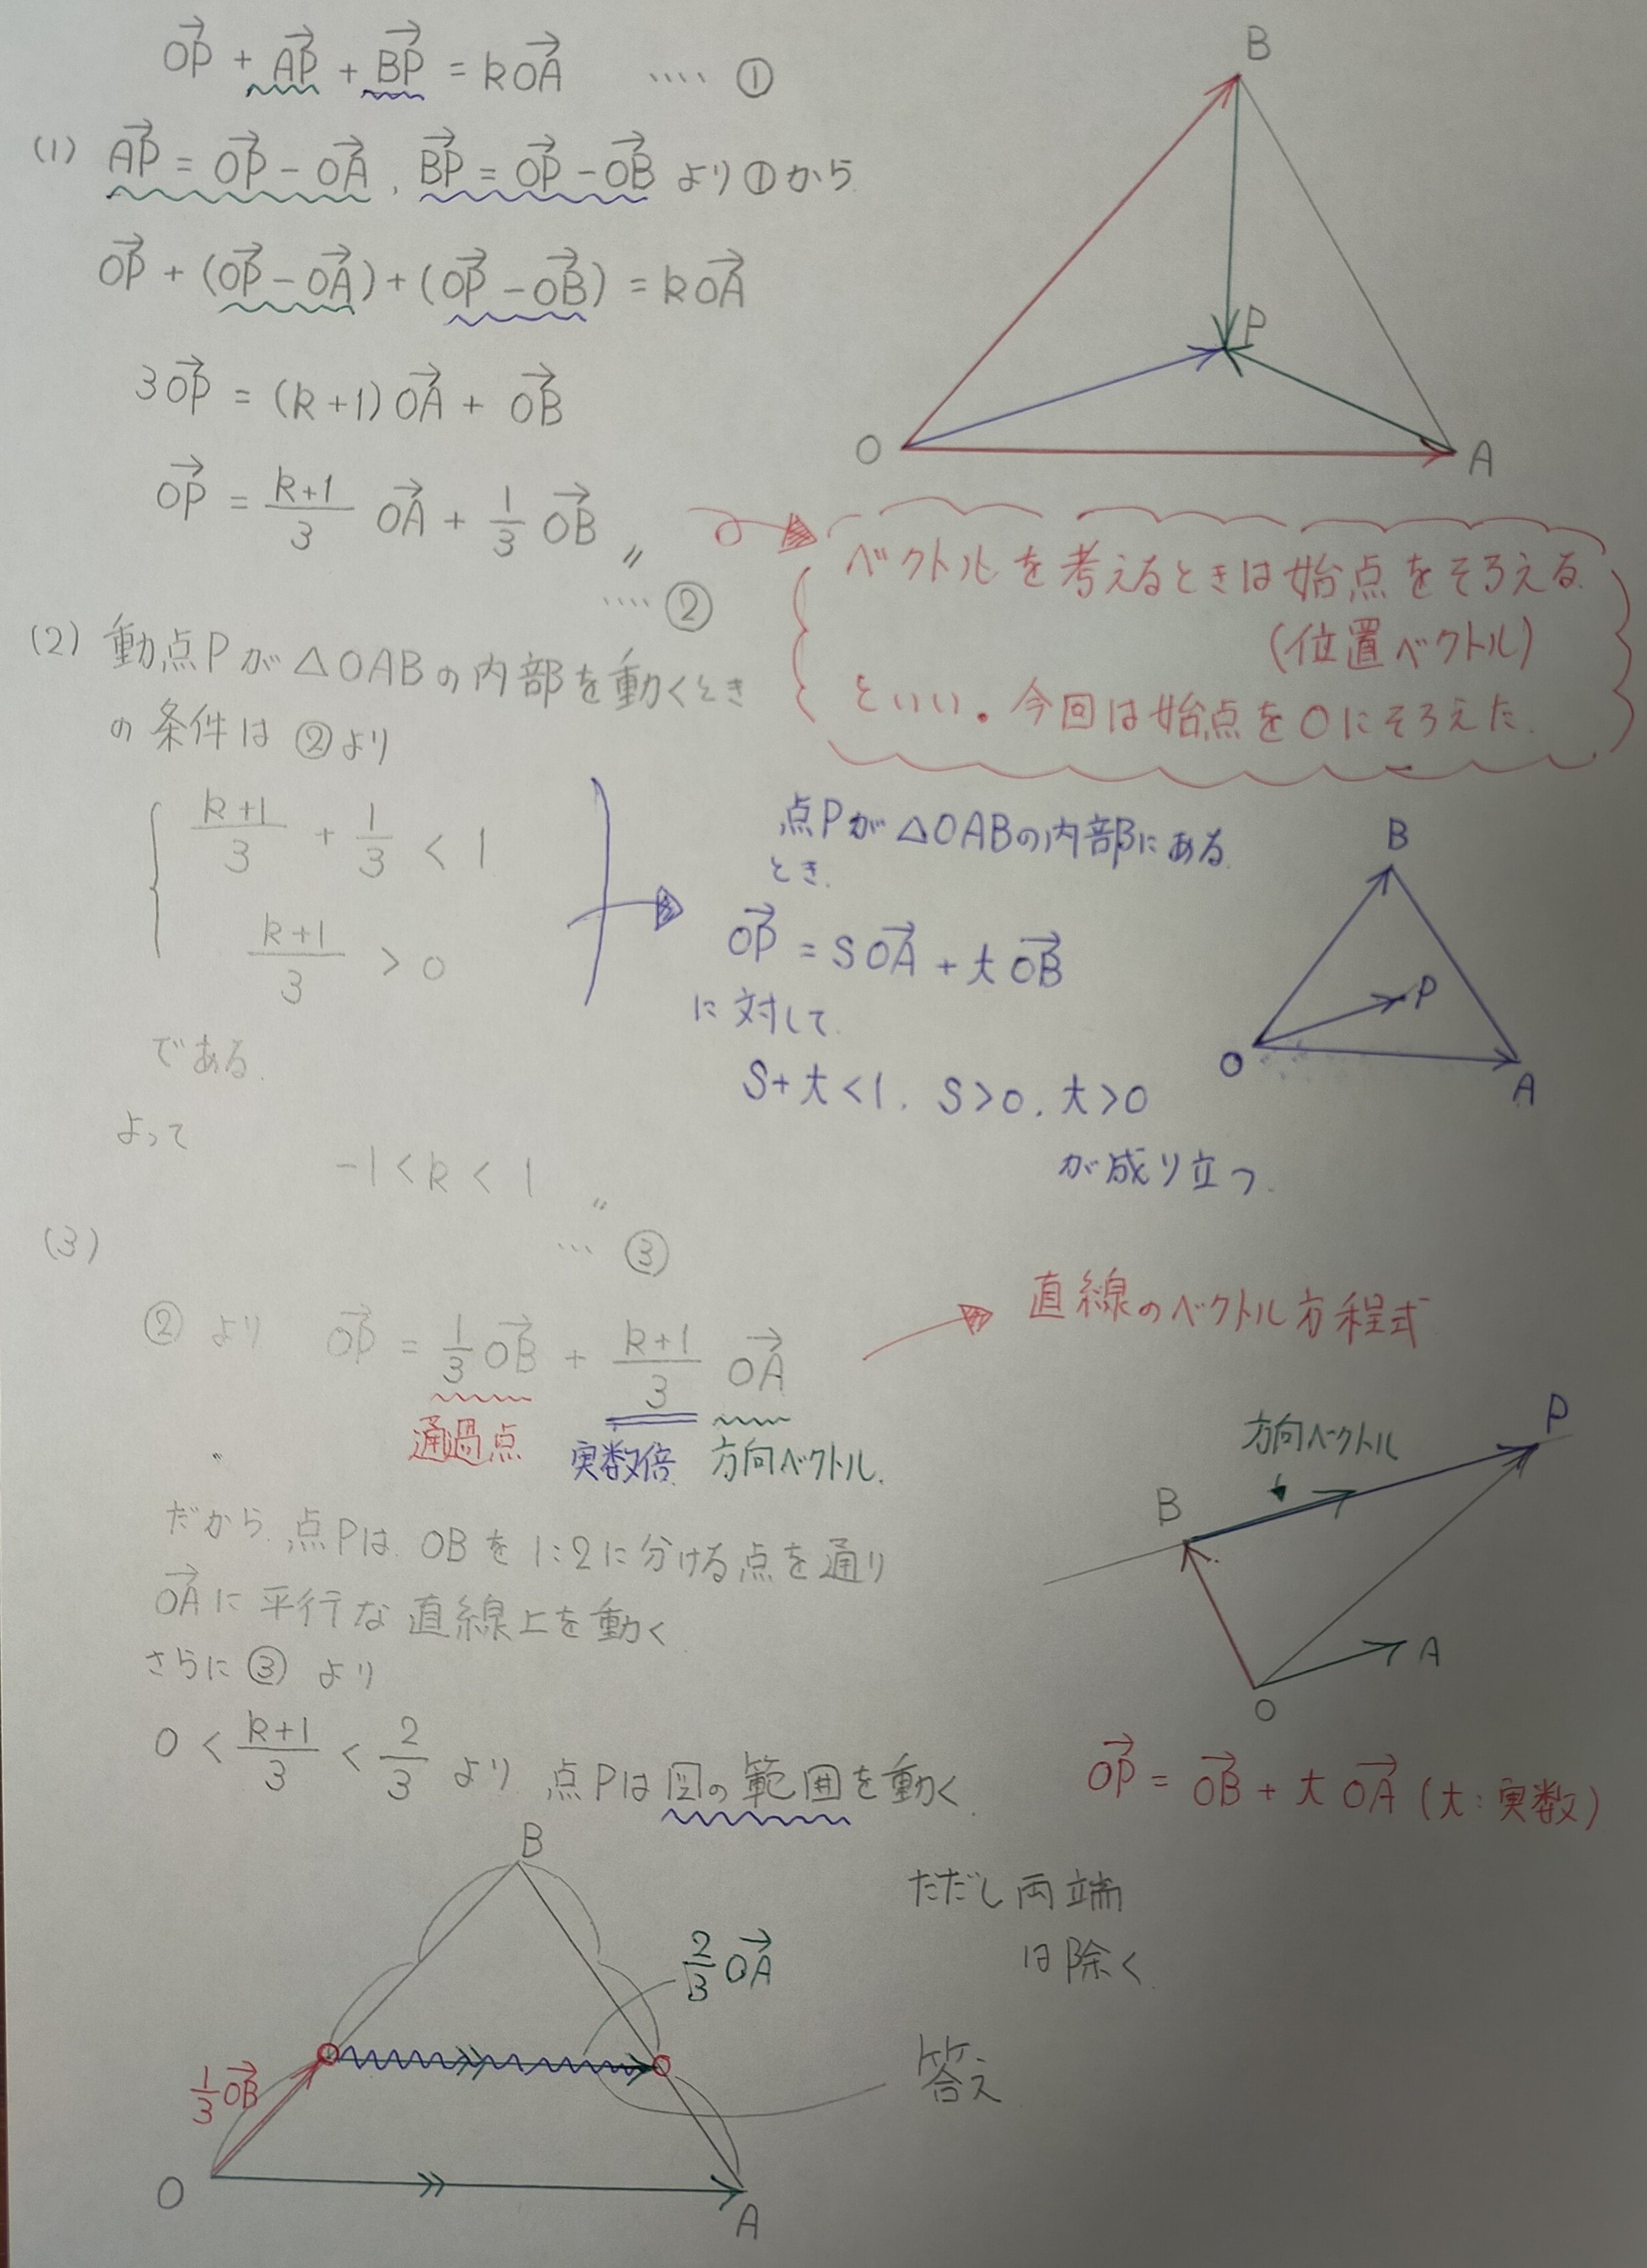 OP→ + AP→ + BP→ = kOA→ ‥‥ ①
(1) AP→ = OP→ - OA→, BP→ = OP→ - OB→ より①から
OP→ + (OP→ - OA→) + (OP→ - OB→) = kOA→
3OP→ = (k+1)OA→ + OB→
OP→ = (k+1)/3 OA→ + 1/3 OB→ 〃
‥‥ ②
B
P
O
A
ベクトルを考えるときは始点をそろえる
(位置ベクトル)
といい. 今回は始点をOにそろえた.
(2) 動点Pが△OABの内部を動くとき
の条件は ②より
(k+1)/3 + 1/3 < 1
(k+1)/3 > 0
である.
よって
-1 < k < 1 〃
‥ ③
点Pが△OABの内部にある
とき.
OP→ = sOA→ + tOB→
に対して.
s+t<1. s>0. t>0
が成り立つ.
B
P
O
A
(3)
②より OP→ = 1/3 OB→ + (k+1)/3 OA→
通過点 実数倍 方向ベクトル.
直線のベクトル方程式
だから.点Pは OBを1:2に分ける点を通り
OA→に平行な直線上を動く
さらに③より
0 < (k+1)/3 < 2/3 より 点Pは図の範囲を動く.
方向ベクトル
P
B
A
O
OP→ = OB→ + tOA→ (t:実数)
ただし両端
は除く.
B
2/3 OA→
1/3 OB→
答え
O
A